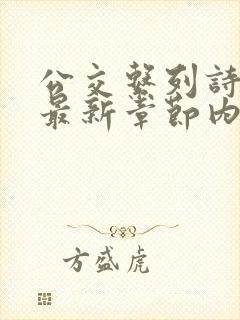 公交系列詩
最新章節内
方盛虎